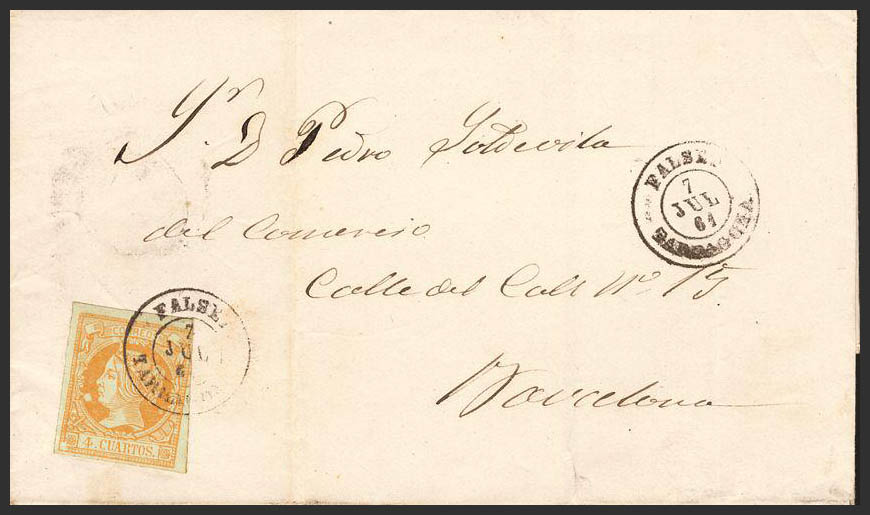 Sr. D. Pedro Soldevila
del Comercio
Calle del Call No 15
Barcelona
FALSET
7
JUL
61
TARRAGONA
CORREOS
4. CUARTOS.
FALSET
7
JUL
6
TARRAGONA